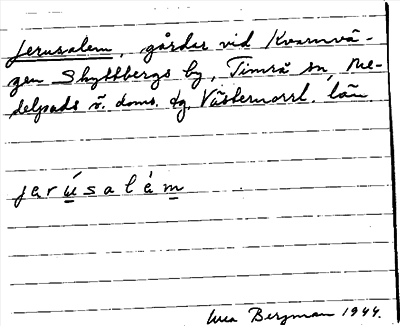 Jerusalem, gårdar vid Kvarnvä-
gen Skyttbergs by, Timrå sn, Me-
delpads v. doms. tg. Västernorrl. län
jerúsalém
Bergman 1944.